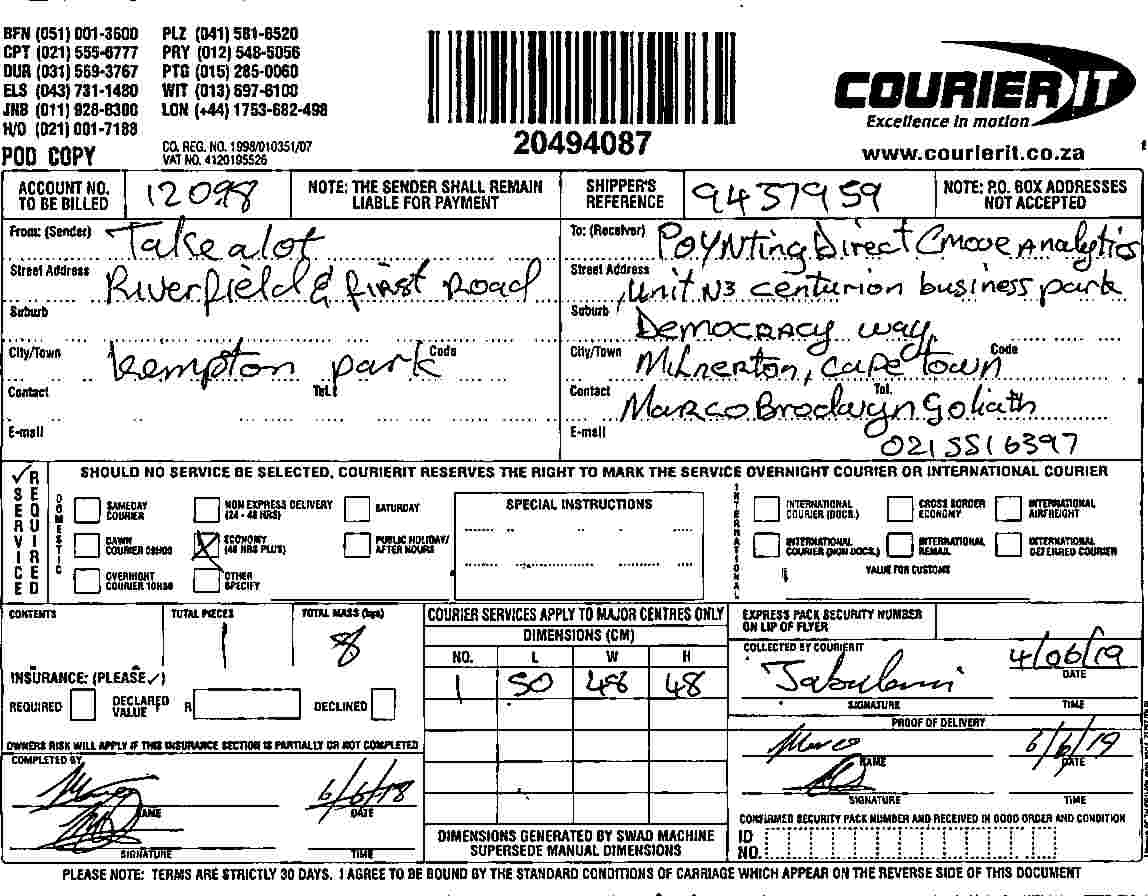 BFN (051) 001-3600 PLZ (041) 581-8520
CPT (021) 555-6777 PRY (012) 548-5056
DUR (031) 569-3767 PTG (015) 285-0060
ELS (043) 731-1480 WIT (013) 697-6100
JNB (011) 928-8300 LON (+44) 1753-682-498
H/O (021) 001-7188
POD COPY
CO. REG. NO. 1998/010351/07
VAT NO. 4120195526
20494087
COURIER IT
Excellence in motion
www.courierit.co.za
ACCOUNT NO. TO BE BILLED 12098 NOTE: THE SENDER SHALL REMAIN LIABLE FOR PAYMENT
SHIPPER'S REFERENCE 9437959 NOTE: P.O. BOX ADDRESSES NOT ACCEPTED
From: (Sender) Takealot
Street Address Riverfield & first Road
Suburb
City/Town Kempton park Code
Contact Tel.
E-mail
To: (Receiver) POYNTing Direct Cmove Analytics
Street Address Unit N3 centurion business park
Suburb Democracy way
City/Town Milnerton, Cape Town Code
Contact Marco Brodwyn Goliath Tel.
E-mail 0215516397
SERVICE REQUIRED
SHOULD NO SERVICE BE SELECTED, COURIERIT RESERVES THE RIGHT TO MARK THE SERVICE OVERNIGHT COURIER OR INTERNATIONAL COURIER
DOMESTIC
SAMEDAY COURIER
NON EXPRESS DELIVERY (24 - 48 HRS)
SATURDAY
DAWN COURIER 08H00
ECONOMY (48 HRS PLUS)
PUBLIC HOLIDAY/ AFTER HOURS
OVERNIGHT COURIER 10H30
OTHER SPECIFY
SPECIAL INSTRUCTIONS
INTERNATIONAL
INTERNATIONAL COURIER (DOCS.)
CROSS BORDER ECONOMY
INTERNATIONAL AIRFREIGHT
INTERNATIONAL COURIER (NON DOCS.)
INTERNATIONAL REMAIL
INTERNATIONAL DEFERRED COURIER
VALUE FOR CUSTOMS
CONTENTS
TOTAL PIECES 1
TOTAL MASS (kgs) 8
INSURANCE: (PLEASE ✓)
REQUIRED DECLARED VALUE R DECLINED
OWNERS RISK WILL APPLY IF THIS INSURANCE SECTION IS PARTIALLY OR NOT COMPLETED
COMPLETED BY
NAME 6/6/18 DATE
SIGNATURE TIME
COURIER SERVICES APPLY TO MAJOR CENTRES ONLY
DIMENSIONS (CM)
NO. L W H
1 50 48 48
DIMENSIONS GENERATED BY SWAD MACHINE SUPERSEDE MANUAL DIMENSIONS
EXPRESS PACK SECURITY NUMBER ON LIP OF FLYER
COLLECTED BY COURIERIT
Jabulani 4/06/19
SIGNATURE DATE
TIME
PROOF OF DELIVERY
Marco 6/6/19
NAME DATE
SIGNATURE TIME
CONFIRMED SECURITY PACK NUMBER AND RECEIVED IN GOOD ORDER AND CONDITION
ID NO.
PLEASE NOTE: TERMS ARE STRICTLY 30 DAYS. I AGREE TO BE BOUND BY THE STANDARD CONDITIONS OF CARRIAGE WHICH APPEAR ON THE REVERSE SIDE OF THIS DOCUMENT